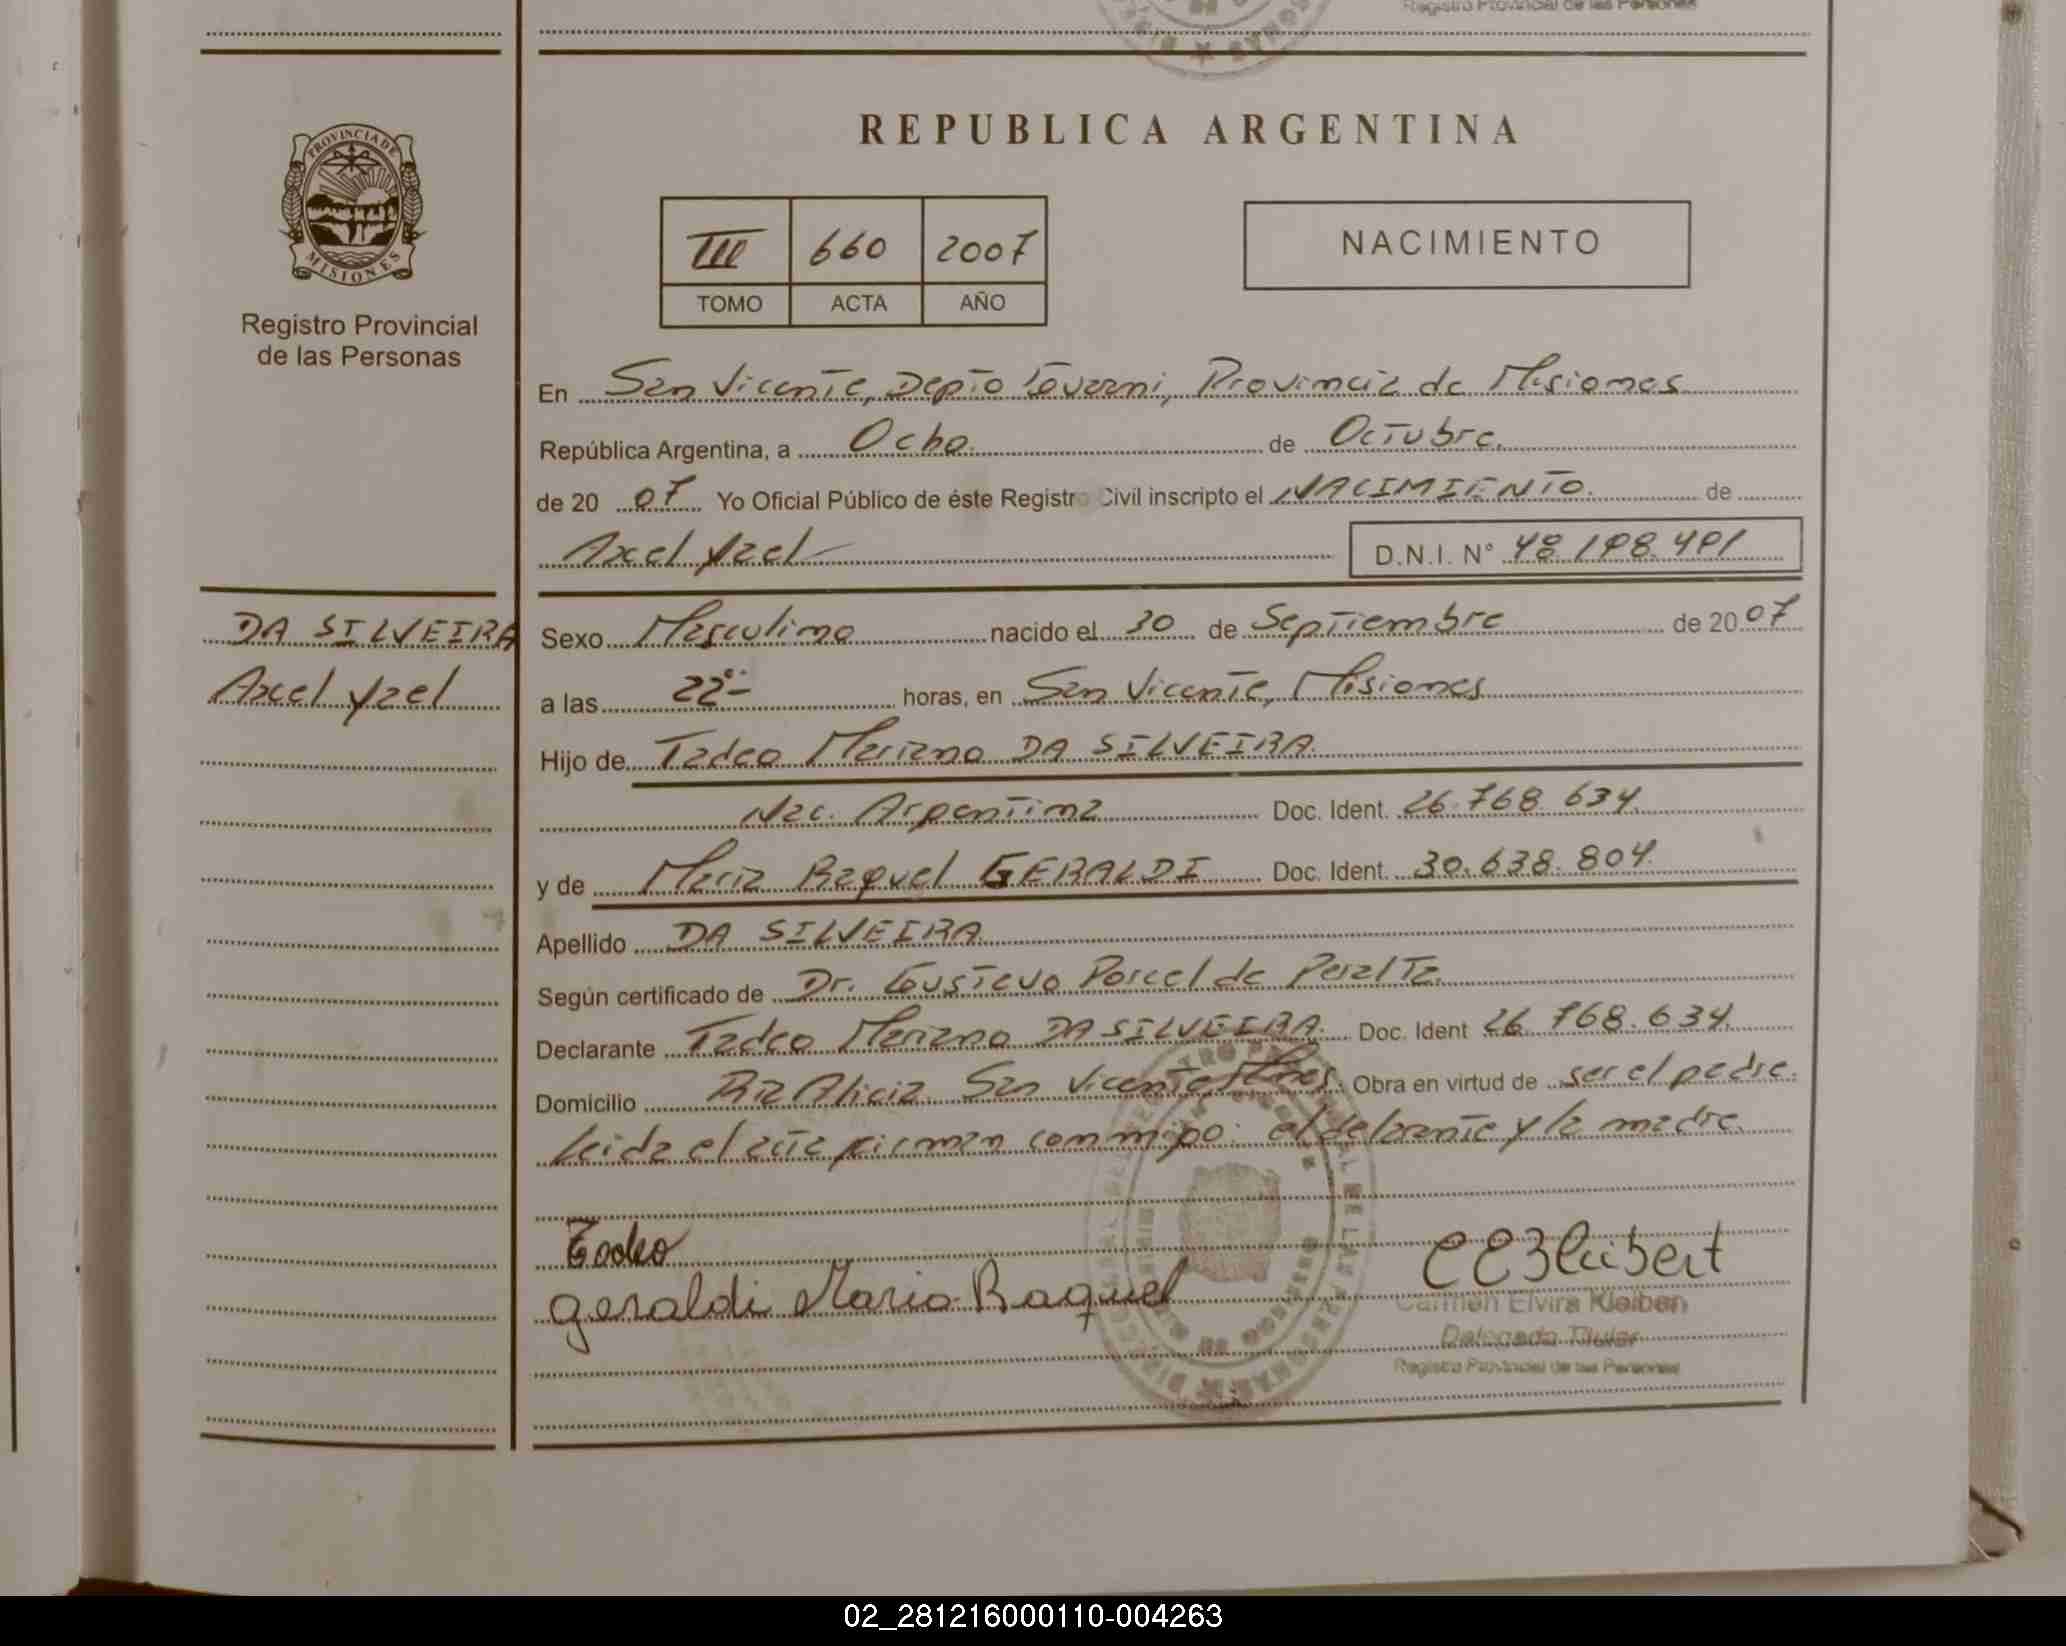 Registro Provincial de las Personas
REPUBLICA ARGENTINA
PROVINCIA DE
MISIONES
Registro Provincial
de las Personas
III 660 2007
TOMO ACTA AÑO
NACIMIENTO
En San Vicente, Depto Guarani, Provincia de Misiones
República Argentina, a Ocho de Octubre
de 20 07 Yo Oficial Público de éste Registro Civil inscripto el NACIMIENTO de
Axel Yael D.N.I. N° 48.198.491
DA SILVEIRA
Axel Yael
Sexo Masculino nacido el 30 de Septiembre de 20 07
a las 22 horas, en San Vicente, Misiones
Hijo de Tadeo Mariano DA SILVEIRA
Nac. Argentina Doc. Ident. 26.768.634
y de Maria Raquel GERALDI Doc. Ident. 30.638.804
Apellido DA SILVEIRA
Según certificado de Dr. Gustavo Porcel de Peralta
Declarante Tadeo Mariano DA SILVEIRA Doc. Ident 26.768.634
Domicilio Alicia San Vicente Mnes. Obra en virtud de ser el padre.
Leida el acta firman conmigo: el y la madre.
Tadeo
Geraldi Maria Raquel
Carmen Elvira Kleiben
Delegada Titular
Registro Provincial de las Personas
02_281216000110-004263